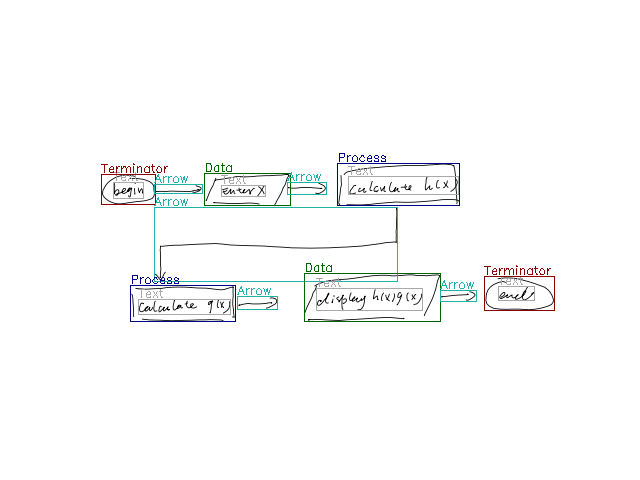 Terminator
Text
begin
Arrow
Arrow
Data
Text
enter X
Arrow
Process
Text
calculate h(x)
Process
Text
calculate g(x)
Arrow
Data
Text
display h(x) g(x)
Arrow
Terminator
Text
end